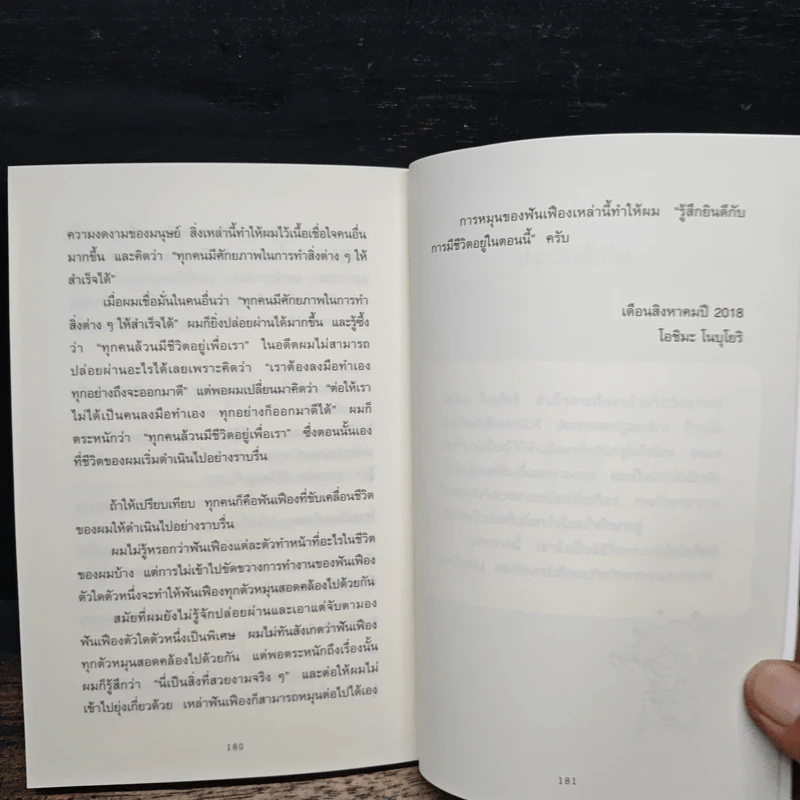 ความงดงามของมนุษย์ สิ่งเหล่านี้ทำให้ผมไว้เนื้อเชื่อใจคนอื่น
มากขึ้น และคิดว่า “ทุกคนมีศักยภาพในการทำสิ่งต่าง ๆ ให้
สำเร็จได้”
เมื่อผมเชื่อมั่นในคนอื่นว่า “ทุกคนมีศักยภาพในการทำ
สิ่งต่าง ๆ ให้สำเร็จได้” ผมก็ยิ่งปล่อยผ่านได้มากขึ้น และรู้ซึ้ง
ว่า “ทุกคนล้วนมีชีวิตอยู่เพื่อเรา” ในอดีตผมไม่สามารถ
ปล่อยผ่านอะไรได้เลยเพราะคิดว่า “เราต้องลงมือทำเอง
ทุกอย่างถึงจะออกมาดี” แต่พอผมเปลี่ยนมาคิดว่า “ต่อให้เรา
ไม่ได้เป็นคนลงมือทำเอง ทุกอย่างก็ออกมาดีได้” ผมก็
ตระหนักว่า “ทุกคนล้วนมีชีวิตอยู่เพื่อเรา” ซึ่งตอนนั้นเอง
ที่ชีวิตของผมเริ่มดำเนินไปอย่างราบรื่น
ถ้าให้เปรียบเทียบ ทุกคนก็คือฟันเฟืองที่ขับเคลื่อนชีวิต
ของผมให้ดำเนินไปอย่างราบรื่น
ผมไม่รู้หรอกว่าฟันเฟืองแต่ละตัวทำหน้าที่อะไรในชีวิต
ของผมบ้าง แต่การไม่เข้าไปขัดขวางการทำงานของฟันเฟือง
ตัวใดตัวหนึ่งจะทำให้ฟันเฟืองทุกตัวหมุนสอดคล้องไปด้วยกัน
สมัยที่ผมยังไม่รู้จักปล่อยผ่านและเอาแต่จับตามอง
ฟันเฟืองตัวใดตัวหนึ่งเป็นพิเศษ ผมไม่ทันสังเกตว่าฟันเฟือง
ทุกตัวหมุนสอดคล้องไปด้วยกัน แต่พอตระหนักถึงเรื่องนั้น
ผมก็รู้สึกว่า “นี่เป็นสิ่งที่สวยงามจริง ๆ” และต่อให้ผมไม่
เข้าไปยุ่งเกี่ยวด้วย เหล่าฟันเฟืองก็สามารถหมุนต่อไปได้เอง
180
การหมุนของฟันเฟืองเหล่านี้ทำให้ผม “รู้สึกยินดีกับ
การมีชีวิตอยู่ในตอนนี้” ครับ
เดือนสิงหาคมปี 2018
โอชิมะ โนบุโยริ
181